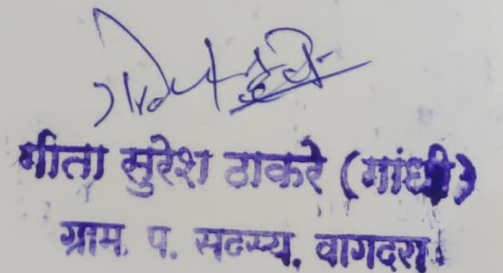 गीता सुरेश ठाकरे (गांधी)
ग्राम. प. सदस्य, वागदरा.